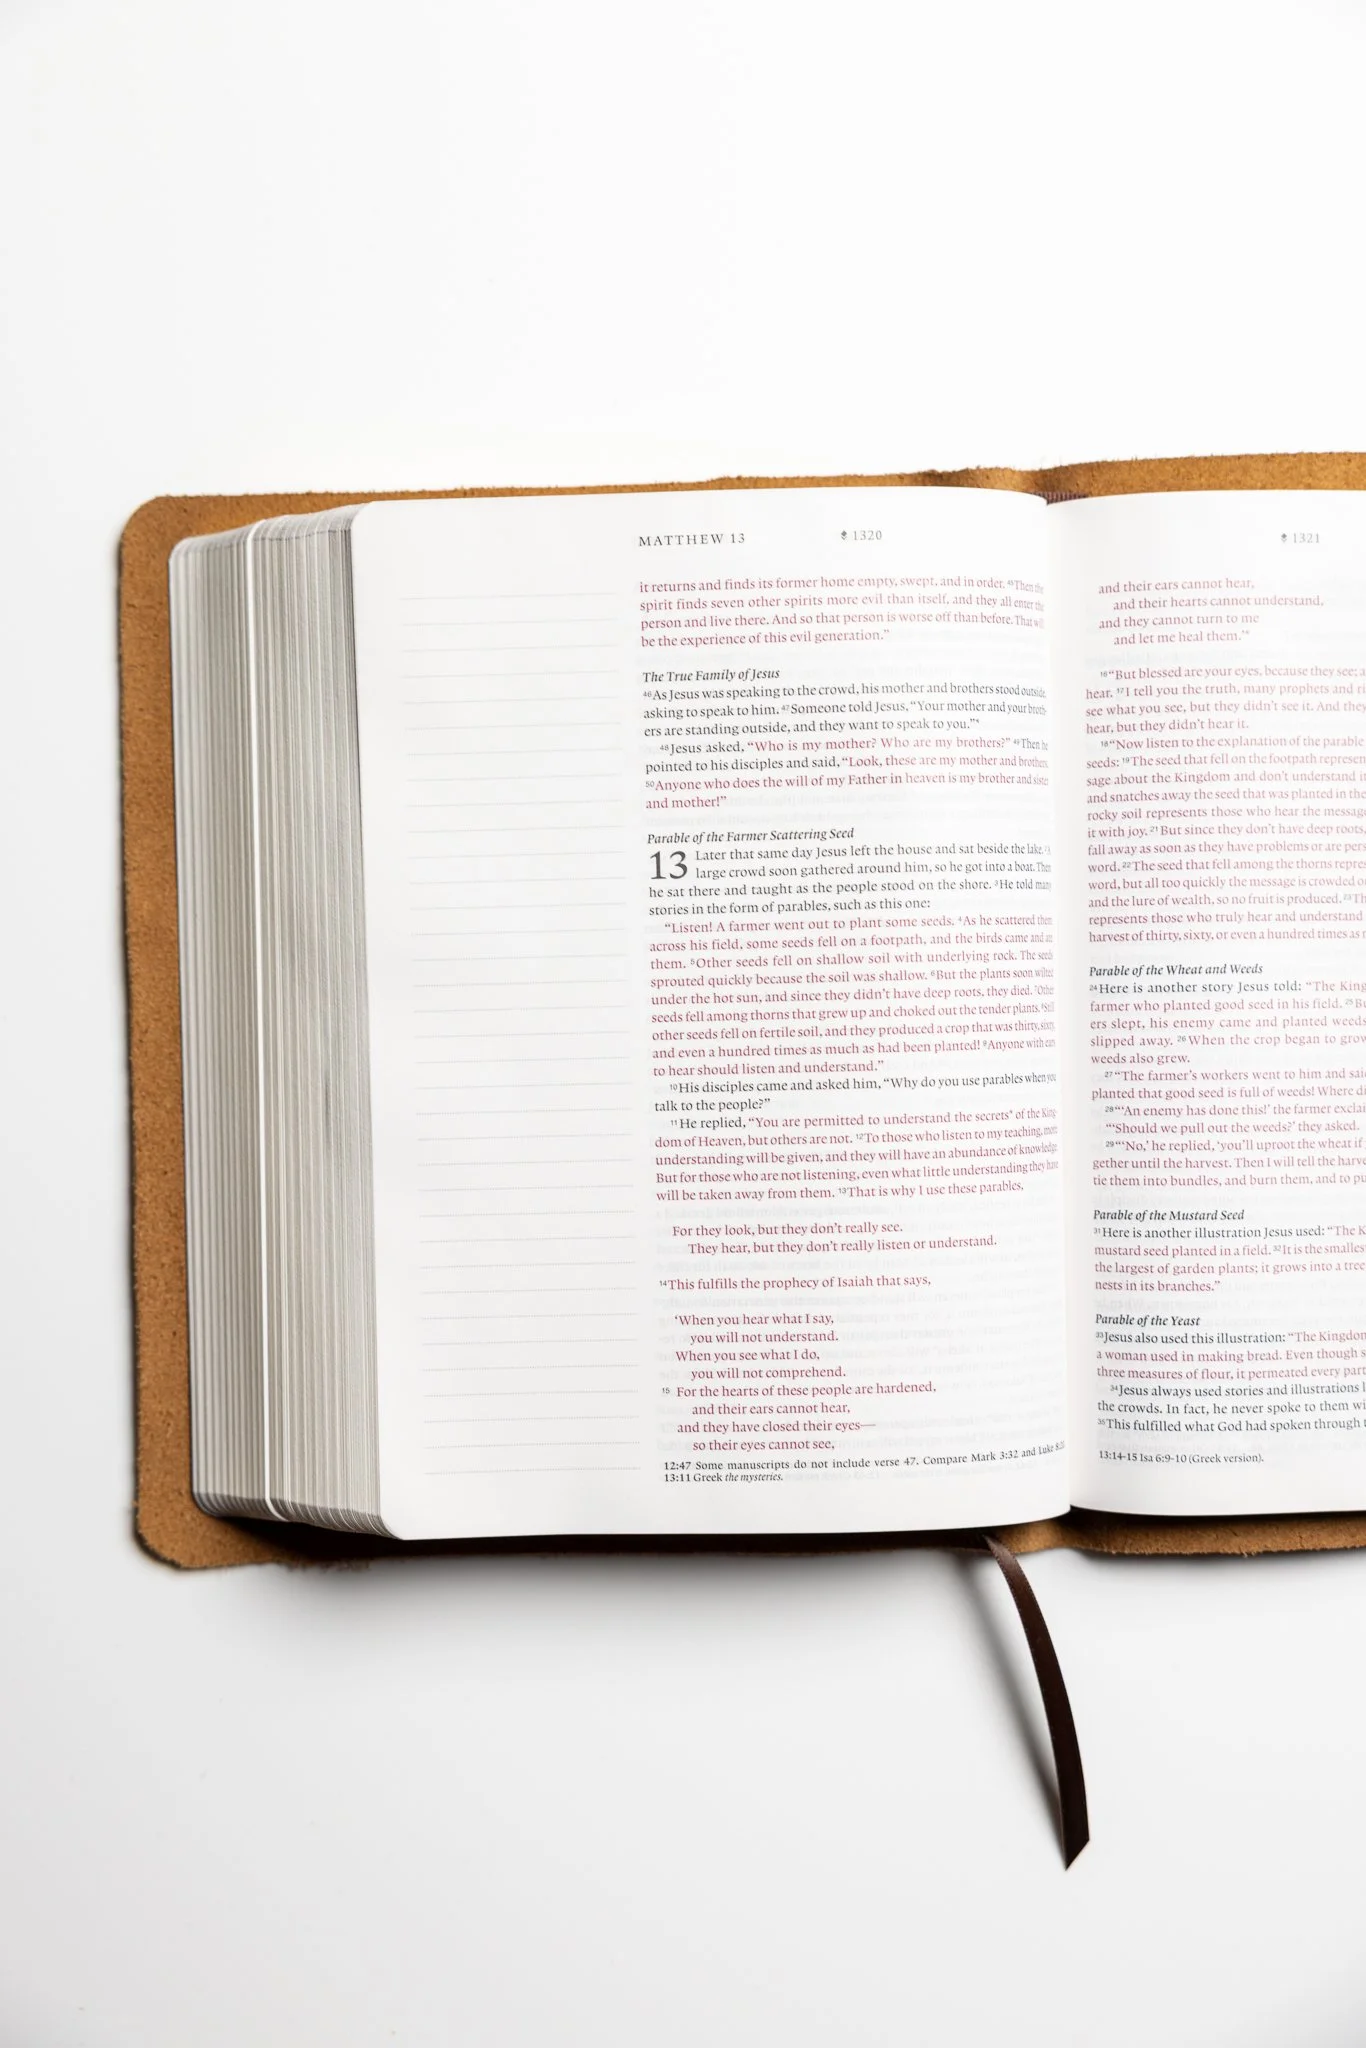 MATTHEW 13 1320
it returns and finds its former home empty, swept, and in order. 45Then the
spirit finds seven other spirits more evil than itself, and they all enter the
person and live there. And so that person is worse off than before. That will
be the experience of this evil generation.”
The True Family of Jesus
46As Jesus was speaking to the crowd, his mother and brothers stood outside,
asking to speak to him. 47Someone told Jesus, “Your mother and your broth-
ers are standing outside, and they want to speak to you.”*
48Jesus asked, “Who is my mother? Who are my brothers?” 49Then he
pointed to his disciples and said, “Look, these are my mother and brothers.
50Anyone who does the will of my Father in heaven is my brother and sister
and mother!”
Parable of the Farmer Scattering Seed
13 Later that same day Jesus left the house and sat beside the lake. 2A
large crowd soon gathered around him, so he got into a boat. Then
he sat there and taught as the people stood on the shore. 3He told many
stories in the form of parables, such as this one:
“Listen! A farmer went out to plant some seeds. 4As he scattered them
across his field, some seeds fell on a footpath, and the birds came and
them. 5Other seeds fell on shallow soil with underlying rock. The seeds
sprouted quickly because the soil was shallow. 6But the plants soon wilted
under the hot sun, and since they didn’t have deep roots, they died. 7Other
seeds fell among thorns that grew up and choked out the tender plants. 8Still
other seeds fell on fertile soil, and they produced a crop that was thirty, sixty,
and even a hundred times as much as had been planted! 9Anyone with ears
to hear should listen and understand.”
10His disciples came and asked him, “Why do you use parables when you
talk to the people?”
11He replied, “You are permitted to understand the secrets* of the King-
dom of Heaven, but others are not. 12To those who listen to my teaching, more
understanding will be given, and they will have an abundance of knowledge.
But for those who are not listening, even what little understanding they have
will be taken away from them. 13That is why I use these parables,
For they look, but they don’t really see.
They hear, but they don’t really listen or understand.
14This fulfills the prophecy of Isaiah that says,
‘When you hear what I say,
you will not understand.
When you see what I do,
you will not comprehend.
15 For the hearts of these people are hardened,
and their ears cannot hear,
and they have closed their eyes—
so their eyes cannot see,
12:47 Some manuscripts do not include verse 47. Compare Mark 3:32 and Luke
13:11 Greek the mysteries.
1321
and their ears cannot hear,
and their hearts cannot understand,
and they cannot turn to me
and let me heal them.’*
16“But blessed are your eyes, because they see; a
hear. 17I tell you the truth, many prophets and ri
see what you see, but they didn’t see it. And they
hear, but they didn’t hear it.
18“Now listen to the explanation of the parable
seeds: 19The seed that fell on the footpath represen
sage about the Kingdom and don’t understand it
and snatches away the seed that was planted in the
rocky soil represents those who hear the message
it with joy. 21But since they don’t have deep roots,
fall away as soon as they have problems or are pers
word. 22The seed that fell among the thorns repres
word, but all too quickly the message is crowded o
and the lure of wealth, so no fruit is produced. 23Th
represents those who truly hear and understand
harvest of thirty, sixty, or even a hundred times as
Parable of the Wheat and Weeds
24Here is another story Jesus told: “The King
farmer who planted good seed in his field. 25Bu
ers slept, his enemy came and planted weeds
slipped away. 26When the crop began to grow
weeds also grew.
27“The farmer’s workers went to him and said
planted that good seed is full of weeds! Where di
28“‘An enemy has done this!’ the farmer exclai
“‘Should we pull out the weeds?’ they asked.
29“‘No,’ he replied, ‘you’ll uproot the wheat if
gether until the harvest. Then I will tell the harve
tie them into bundles, and burn them, and to pu
Parable of the Mustard Seed
31Here is another illustration Jesus used: “The K
mustard seed planted in a field. 32It is the smalles
the largest of garden plants; it grows into a tree
nests in its branches.”
Parable of the Yeast
33Jesus also used this illustration: “The Kingdom
a woman used in making bread. Even though s
three measures of flour, it permeated every part
34Jesus always used stories and illustrations l
the crowds. In fact, he never spoke to them wi
35This fulfilled what God had spoken through
13:14-15 Isa 6:9-10 (Greek version).